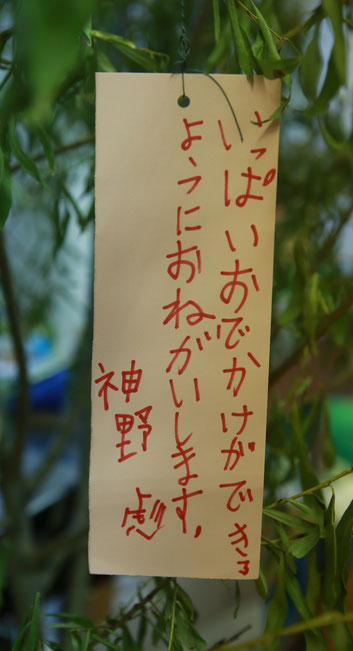 いっぱいおでかけができる
ようにおねがいします。
神野